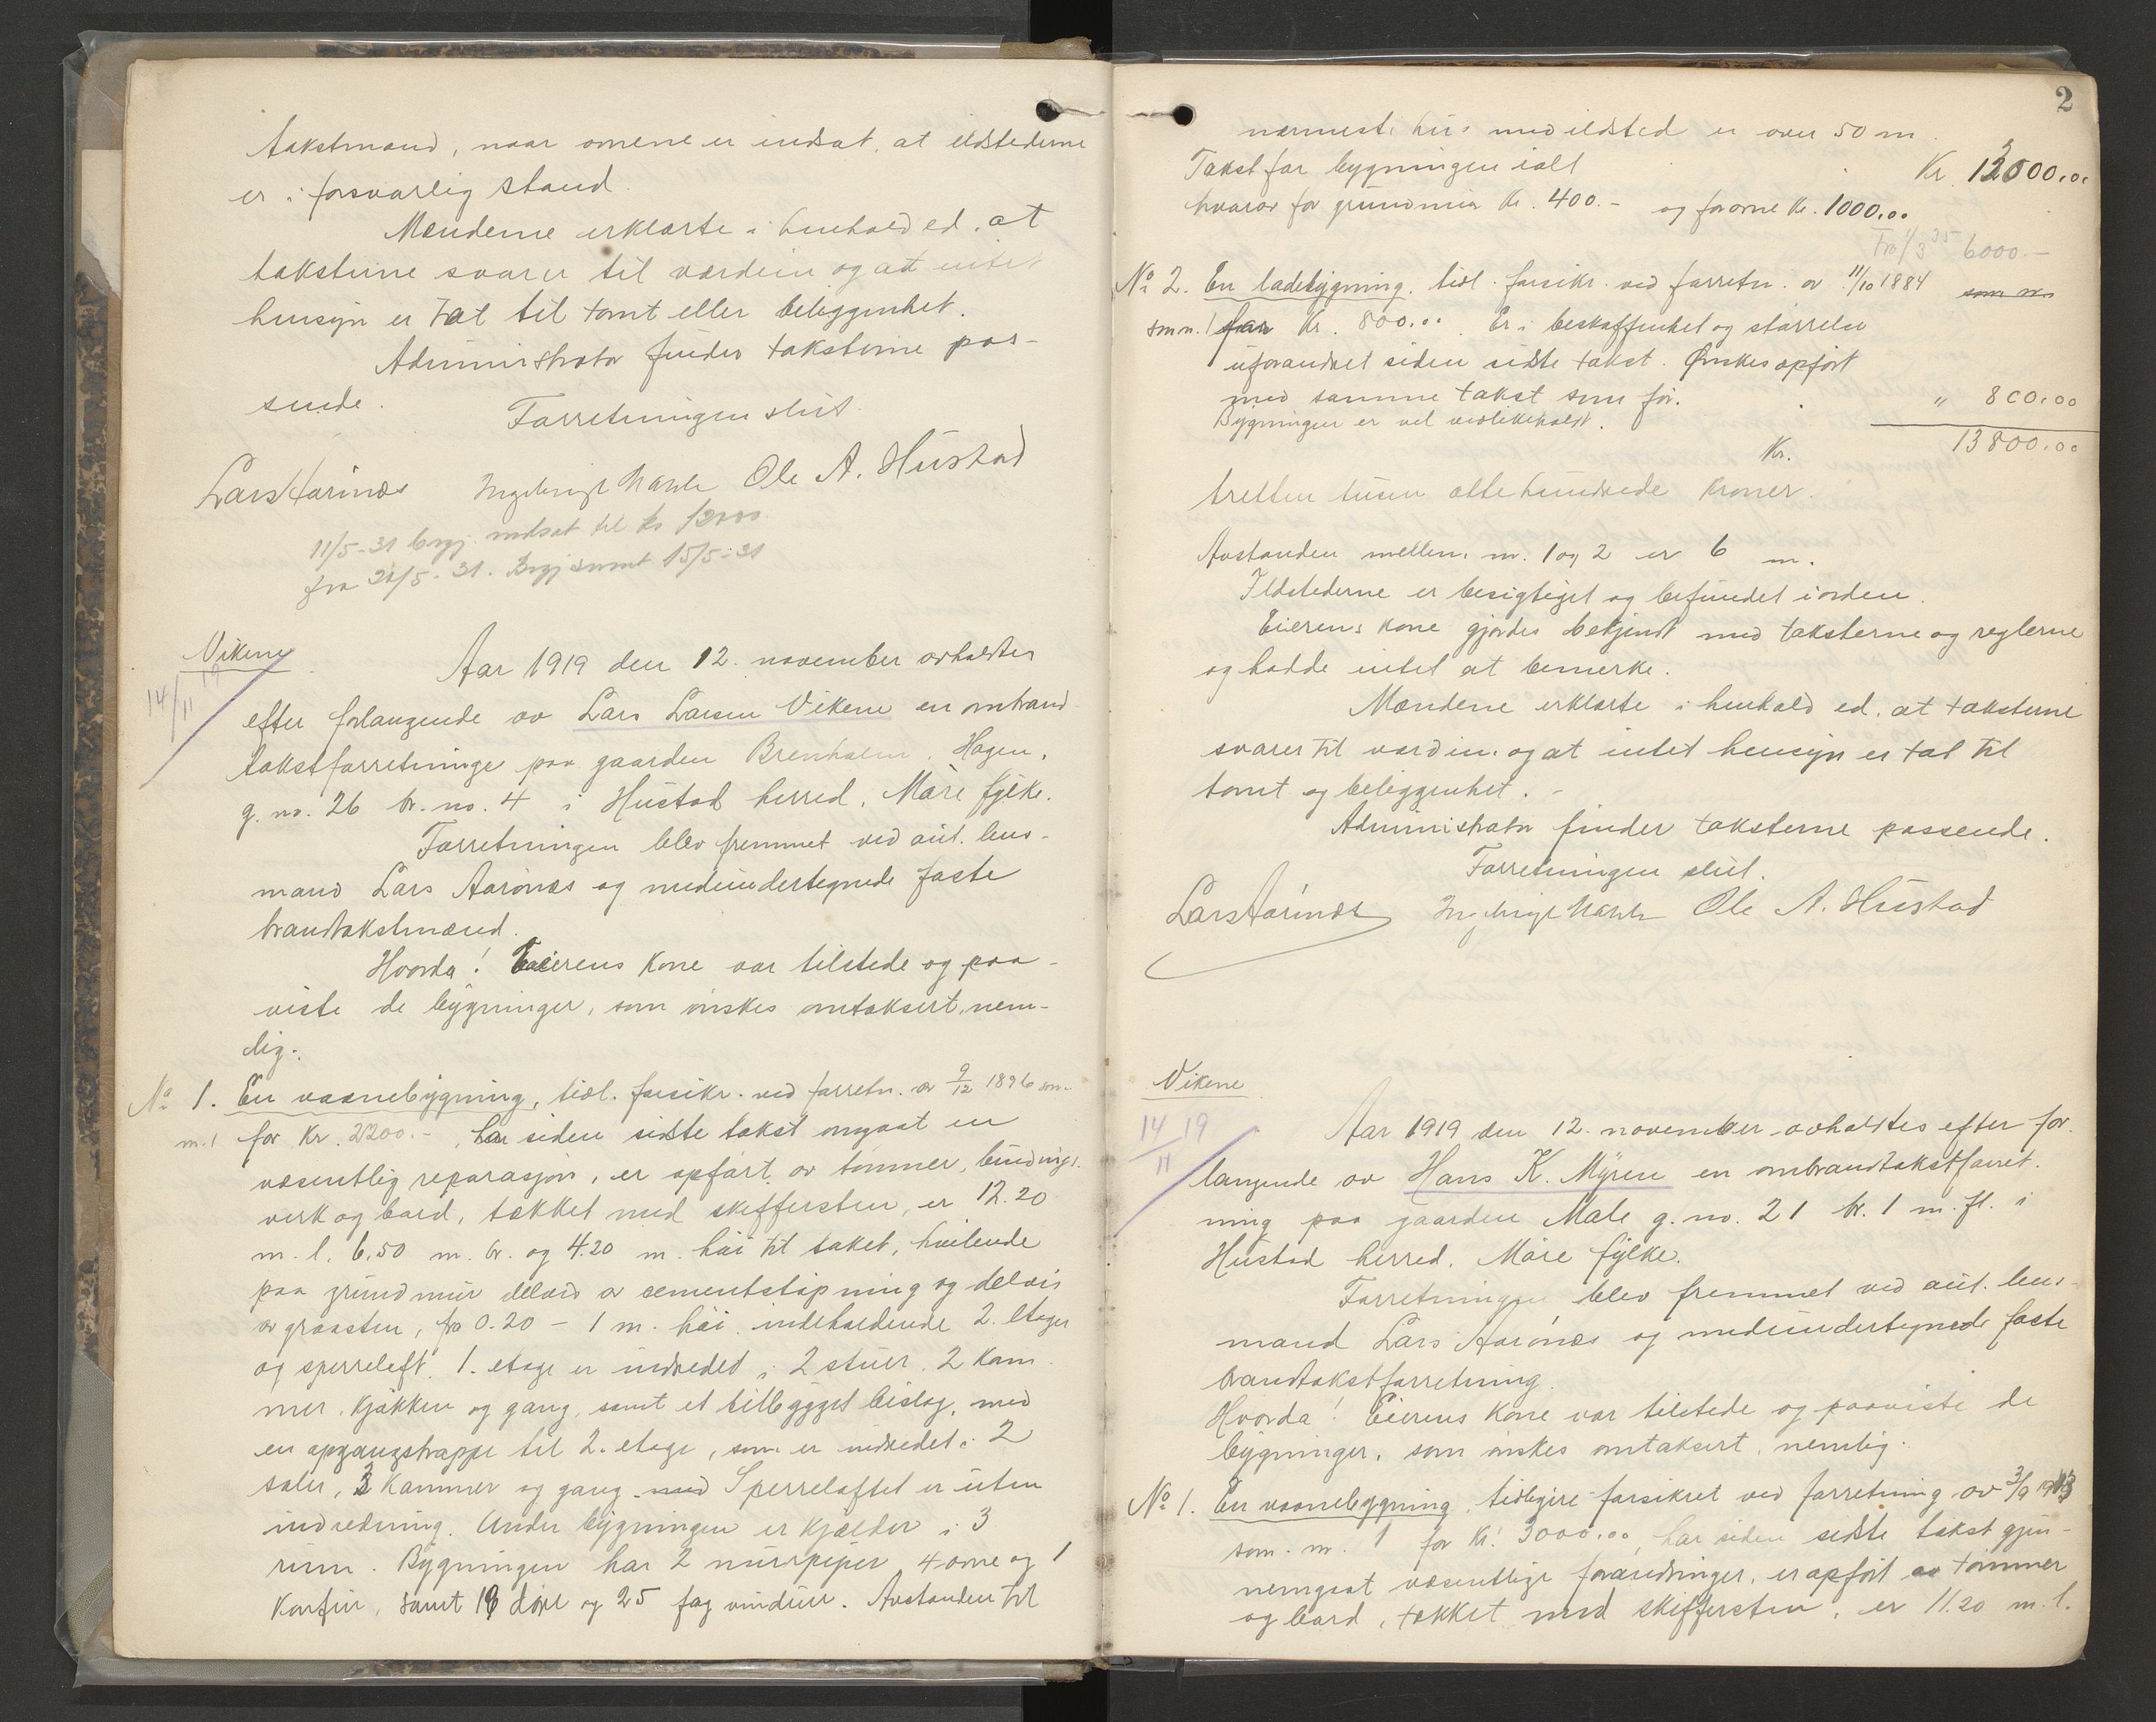 takstmand, naar ovnene er indsat, at ildstederne
er i forsvarlig stand.
Mændene erklærte i henhold ed, at
taksterne svarer til værdien og at intet
hensyn er tat til tomt eller beliggenhet.
Administrator finder taksterne pas-
sende.
Forretningen slut.
Lars Aarönæs Ingebrigt Ole A. Hustad
11/5-31 begj. nedsat til kr 12000
fra 21/5-31. Begj 15/5-31
Vikene
14/11 19
Aar 1919 den 12. november avholdtes
efter forlangende av Lars Larsen Vikene en ombrand
takstforretninge paa gaarden Brenholm, Hagen,
g. no. 26 br. no. 4 i Hustad herred, Möre fylke.
Forretningen blev fremmet ved aut. lens-
mand Lars Aarönæs og medundertegnede faste
brandtakstmænd.
Hvorda! Eierens kone var tilstede og paa-
viste de bygninger, som önskes omtaksert, nem-
lig:
No 1. En vaanebygning, tidl. forsikr. ved forretn. av 9/12 1896 som
nr. 1 for Kr. 2200.-, har siden sidste takst omgaat en
væsentlig reparasjon, er opfört av tömmer, bindings-
verk og bord, tækket med skiffersten, er 12.20
m. l. 6.50 m. br. og 4.20 m. höi til taket, hvilende
paa grundmur delvis av sementstöpning og delvis
av graasten, fra 0.20 - 1 m. höi, indeholdende 2. etager
og sperreloft. 1. etage er indredet i 2 stuer, 2 kam-
mer, kjökken og gang, samt et tilbygget bislag, med
en opgangstrappe til 2. etage, som er indredet i 2
saler, 3 kammer og gang. med Sperreloftet er uten
indredning. Under bygningen er kjælder i 3
rum. Bygningen har 2 murpiper, 4 ovne og 1
komfur, samt 16 döre og 25 fag vinduer. Avstanden til
2
nærmeste hus med ildsted er over 50 m.
Takst for bygningen ialt Kr. 13000.00
hvorav for grundmur Kr. 400.- og for ovne Kr. 1000.00
Fra 1/3 35 6000.-
No 2. En ladebygning, tidl. forsikr. ved forretn. av 11/10 1884 som nr.
som nr. 1 for Kr. 800.00. Er i beskaffenhet og störrelse
uforandret siden sidste takst. Önskes opfört
med samme takst som för. " 800.00
Bygningen er vel vedlikeholdt.
Kr. 13800.00
tretten tusen ottehundrede kroner.
Avstanden mellem nr. 1 og 2 er 6 m.
Ildstederne er besigtiget og befundet i orden.
Eierens kone gjordes bekjendt med taksterne og reglerne
og hadde intet at bemerke.
Mændene erklærte i henhold ed, at taksterne
svarer til værdien og at intet hensyn er tat til
tomt og beliggenhet.
Administrator finder taksterne passende.
Forretningen slut.
Lars Aarönæs Ingebrigt Ole A. Hustad
Vikene
14/11 19
Aar 1919 den 12. november avholdtes efter for-
langende av Hans K. Myren en ombrandtakstforret-
ning paa gaarden Male g. no. 21 br. 1 m. fl. i
Hustad herred, Möre fylke.
Forretningen blev fremmet ved aut. lens-
mand Lars Aarönæs og medundertegnede faste
brandtakstforretning.
Hvorda! Eierens kone var tilstede og paaviste de
bygninger, som önskes omtaksert, nemlig:
No 1. En vaanebygning, tidligere forsikret ved forretning av 3/9 1913
som nr. 1 for Kr. 3000.00, har siden sidste takst gjen-
nemgaat væsentlige forandringer, er opfört av tömmer
og bord, tækket med skiffersten, er 11.20 m. l.